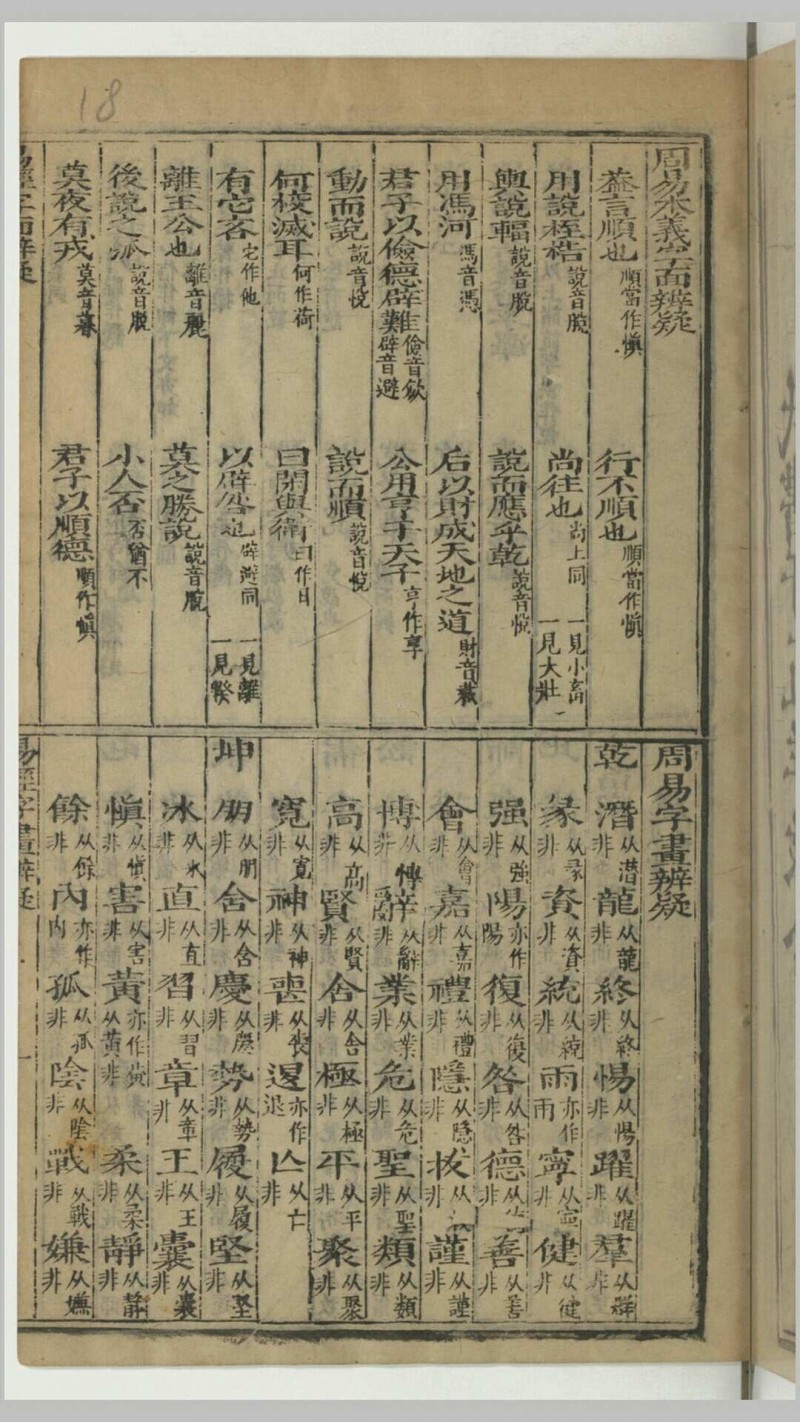 18
周易
辨疑
蓋言順也 順當作愼 行不順也 順當作愼
用說桎梏 說音脫 尚往也 尚上同 一見小畜 一見大壯
輿說輻 說音脫 說而應乎乾 說音悅
用馮河 馮音憑 后以財成天地之道 財音裁
君子以儉德辟難 儉音斂 辟音避 公用亨于天子 亨作享
動而說 說音悅 說而順 說音悅
何校滅耳 何作荷 曰閑輿衛 曰作日
有它吝 它作他 以辟咎也 辟避同 一見離 一見睽
離王公也 離音麗 莫之勝說 說音脫
後說之弧 說音脫 小人否 否會不
莫夜有戎 莫音暮 君子以順德 順作愼
周易字畫辨疑
乾 潛 从潜非 龍 从龍非 終 从終非 惕 从惕非 躍 从躍非 羣 从群非
彖 从彖非 資 从資非 統 从統非 雨 亦作雨 寧 从寧非 健 从健非
强 从強非 陽 亦作陽 復 从復非 咎 从咎非 德 非 善 从善非
會 从會非 嘉 从嘉非 禮 从禮非 隱 从隱非 拔 非 謹 从謹非
博 从愽非 辭 从辭非 業 从業非 危 从危非 聖 从聖非 類 从類非
高 从髙非 賢 从賢非 舍 从舍非 極 从極非 平 从平非 聚 从聚非
寬 从寬非 神 从神非 喪 从喪非 退 亦作退 亾 从亡非
坤 朋 从朋非 含 从含非 慶 从慶非 勢 从勢非 履 从履非 堅 从堅非
冰 从氷非 直 从直非 習 从習非 章 从章非 王 从王非 囊 从囊非
愼 从慎非 害 从害非 黃 亦作黄 从黄非 柔 从柔非 靜 从静非
餘 从餘非 內 亦作内 孤 从孤非 陰 从陰非 戰 从戰非 嫌 从嫌非